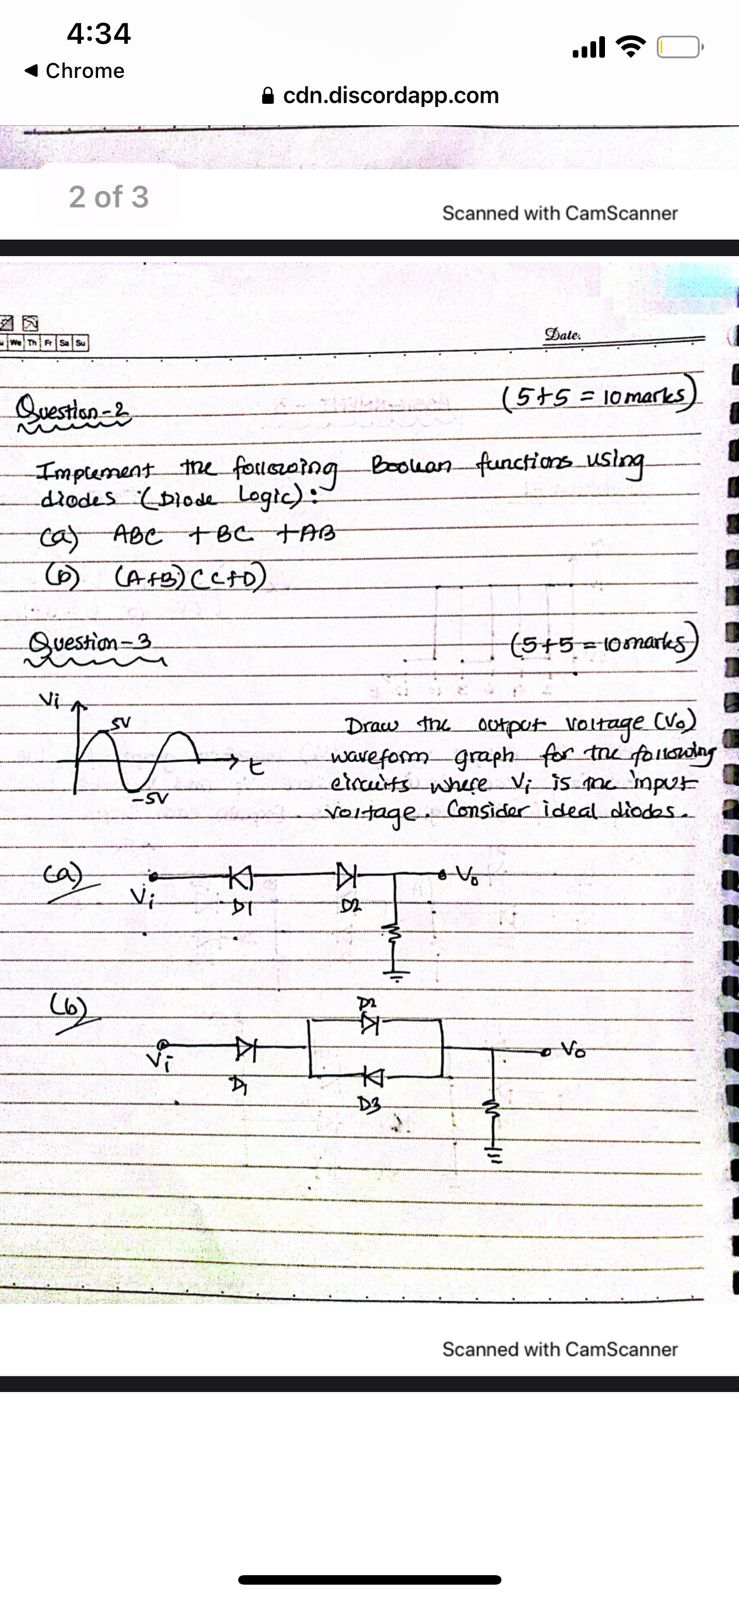 4:34
◀ Chrome
cdn.discordapp.com
2 of 3
Scanned with CamScanner
We Th Fr Sa Su
Date.
Question-2
(5+5 = 10 marks)
Implement the following Boolean functions using
diodes (Diode Logic):
(a) ABC + BC + AB
(b) (A+B)(C+D)
Question-3
(5+5 = 10 marks)
Vi
5V
t
-5V
Draw the output voltage (Vo)
waveform graph for the following
circuits where Vi is the input
voltage. Consider ideal diodes.
(a)
Vi
D1
D2
Vo
(b)
D2
Vi
D1
D3
Vo
Scanned with CamScanner